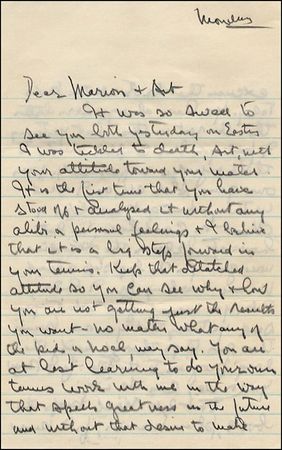 Monday
Dear Marion & Art
It was so sweet to
see you both yesterday on Easter
I was tickled to death, Art, with
your attitude toward your match
It is the first time that you have
stood off & analyzed it without any
alibi or personal feelings & I believe
that it is a big step forward in
your tennis. Keep that detached
attitude so you can see why & how
you are not getting just the results
you want - no matter what any of
the kids or Noel, may say. You are
at last learning to do your own
tennis work with me in the way
that spells greatness in the future
and without that desire to make